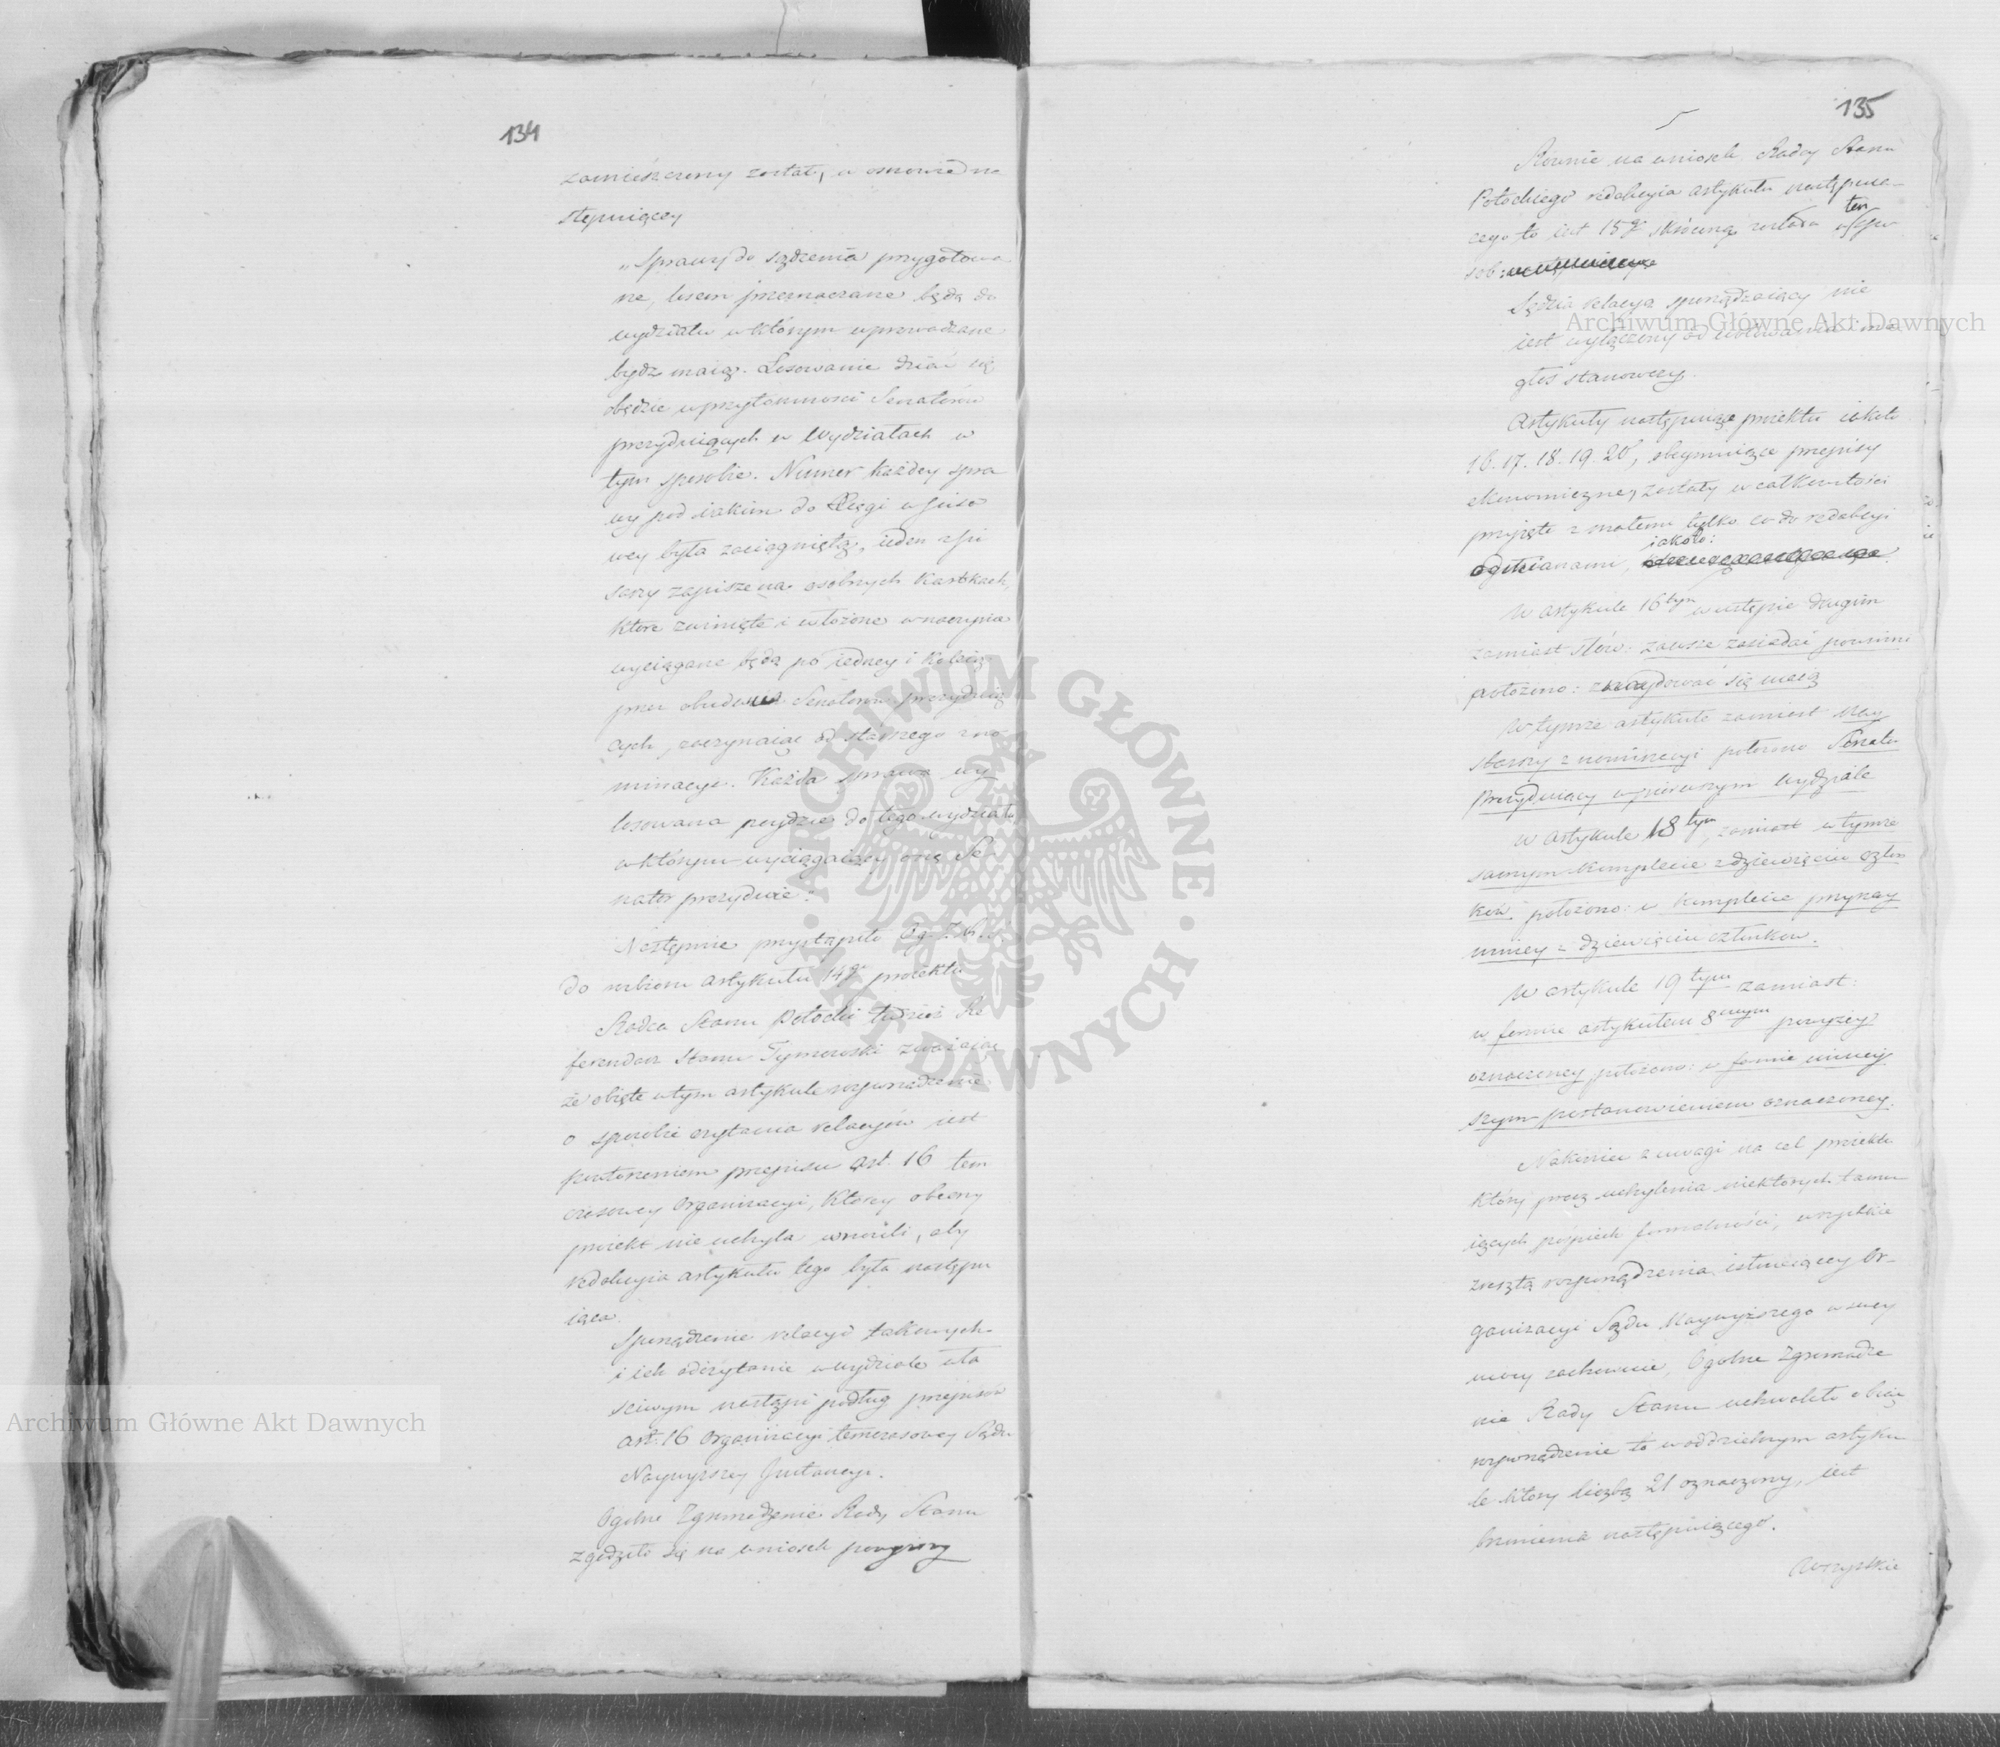 134
zamieszczony został, w osnowie na
stępuiącey
„Sprawy do sądzenia przygotowa
ne, losem przeznaczane będą do
wydziału w którym wprowadzane
bydź maią. Losowanie dziać się
będzie w przytomności Senatorów
prezyduiących w Wydziałach w
tym sposobie. Numer każdey spra
wy pod iakim do Xięgi
wey była zaciągniętą, ieden z Pi
sarzy zapisze na osobnych kartkach,
które zwinięte i włożone w naczynie
wyciągane będą po iedney i koleią
przez obudwu Senatorów prezyduią
cych, zaczynaiąc od starszego z no
minacyi. Każda sprawa wy
losowana poydzie do tego wydziału
w którym wyciągaiący onę Se
nator prezyduie."
Następnie przystąpiło Og. Zgr.
do rozbioru artykułu 14go proiektu
Radca Stanu Potocki tudzież Re
ferendarz Stanu Tymowski zważaiąc
że obięte w tym artykule rozporządzenie
o sposobie czytania relacyów iest
powtórzeniem przepisu art. 16 tym
czasowey Organizacyi, który obecny
proiekt nie uchyla wnosili, aby
redakcyia artykułu tego była następu
iąca.
Sporządzenie relacyi takowych
i ich odczytanie w wydziale wła
ściwym nastąpi podług przepisów
art. 16 Organizacyi tymczasowey Sądu
Naywyższey Instancyi.
Ogólne Zgromadzenie Rady Stanu
zgodziło się na wniosek powyższy
135
Równie na wniosek Radcy Stanu
Potockiego redakcyia artykułu następuią-
cego to iest 15go skróconą została w ten spo
sób:
Sędzia relacyą sporządzaiący nie
iest wyłączony od wotowania i ma
głos stanowczy.
Artykuły następuiące proiektu iakoto
16. 17. 18. 19. 20, obeymuiące przepisy
ekonomiczne, zostały w całkowitości
przyięte z małemi tylko co do redakcyi
odmianami, iakoto:
W artykule 16tym w ustępie drugim
zamiast słów: zawsze zasiadać powinni
położono: znaydować się maią
W tymże artykule zamiast Nay
starszy z nominacyi położono Senator
Prezyduiący w pierwszym wydziale
W artykule 18tym, zamiast w tymże
samym komplecie z dziewięciu człon
ków położono: w komplecie przynay
mniey z dziewięciu członków.
W artykule 19tym zamiast:
w formie artykułem 8mym powyżey
oznaczoney, położono: w formie ninieiy
szym postanowieniem oznaczoney.
Nakoniec z uwagi na cel proiektu
który prócz uchylenia niektórych tamu
iących pośpiech formalności, wszystkie
zresztą rozporządzenia istnieiącey Or-
ganizacyi Sądu Naywyższego w swey
mocy zachowuie, Ogólne Zgromadze
nie Rady Stanu uchwaliło obiąć
rozporządzenie to w oddzielnym artyku
le który liczbą 21 oznaczony, iest
brzmienia następuiącego.
Wszystkie
Archiwum Główne Akt Dawnych
Archiwum Główne Akt Dawnych
ARCHIWUM GŁÓWNE AKT DAWNYCH